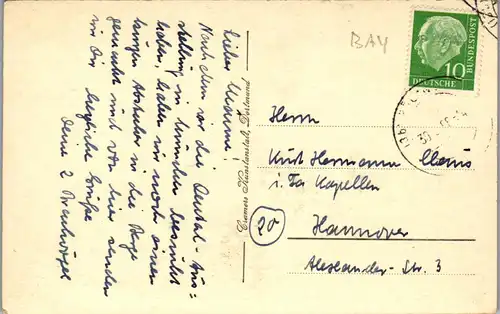 Lieber Mujim!
Nachdem wir die Dental-Aus=
stellung in München besucht
haben, haben wir noch einen
kurzen Abstecher in die Berge
gemacht und von hier senden
wir Dir herzliche Grüße
Deine 2
Cramers Kunstanstalt, Dortmund
BAY
10
DEUTSCHE
BUNDESPOST
Herrn
Kurt Hermann
i. Fa Kapellen
20
Hannover
Alexander-Str. 3